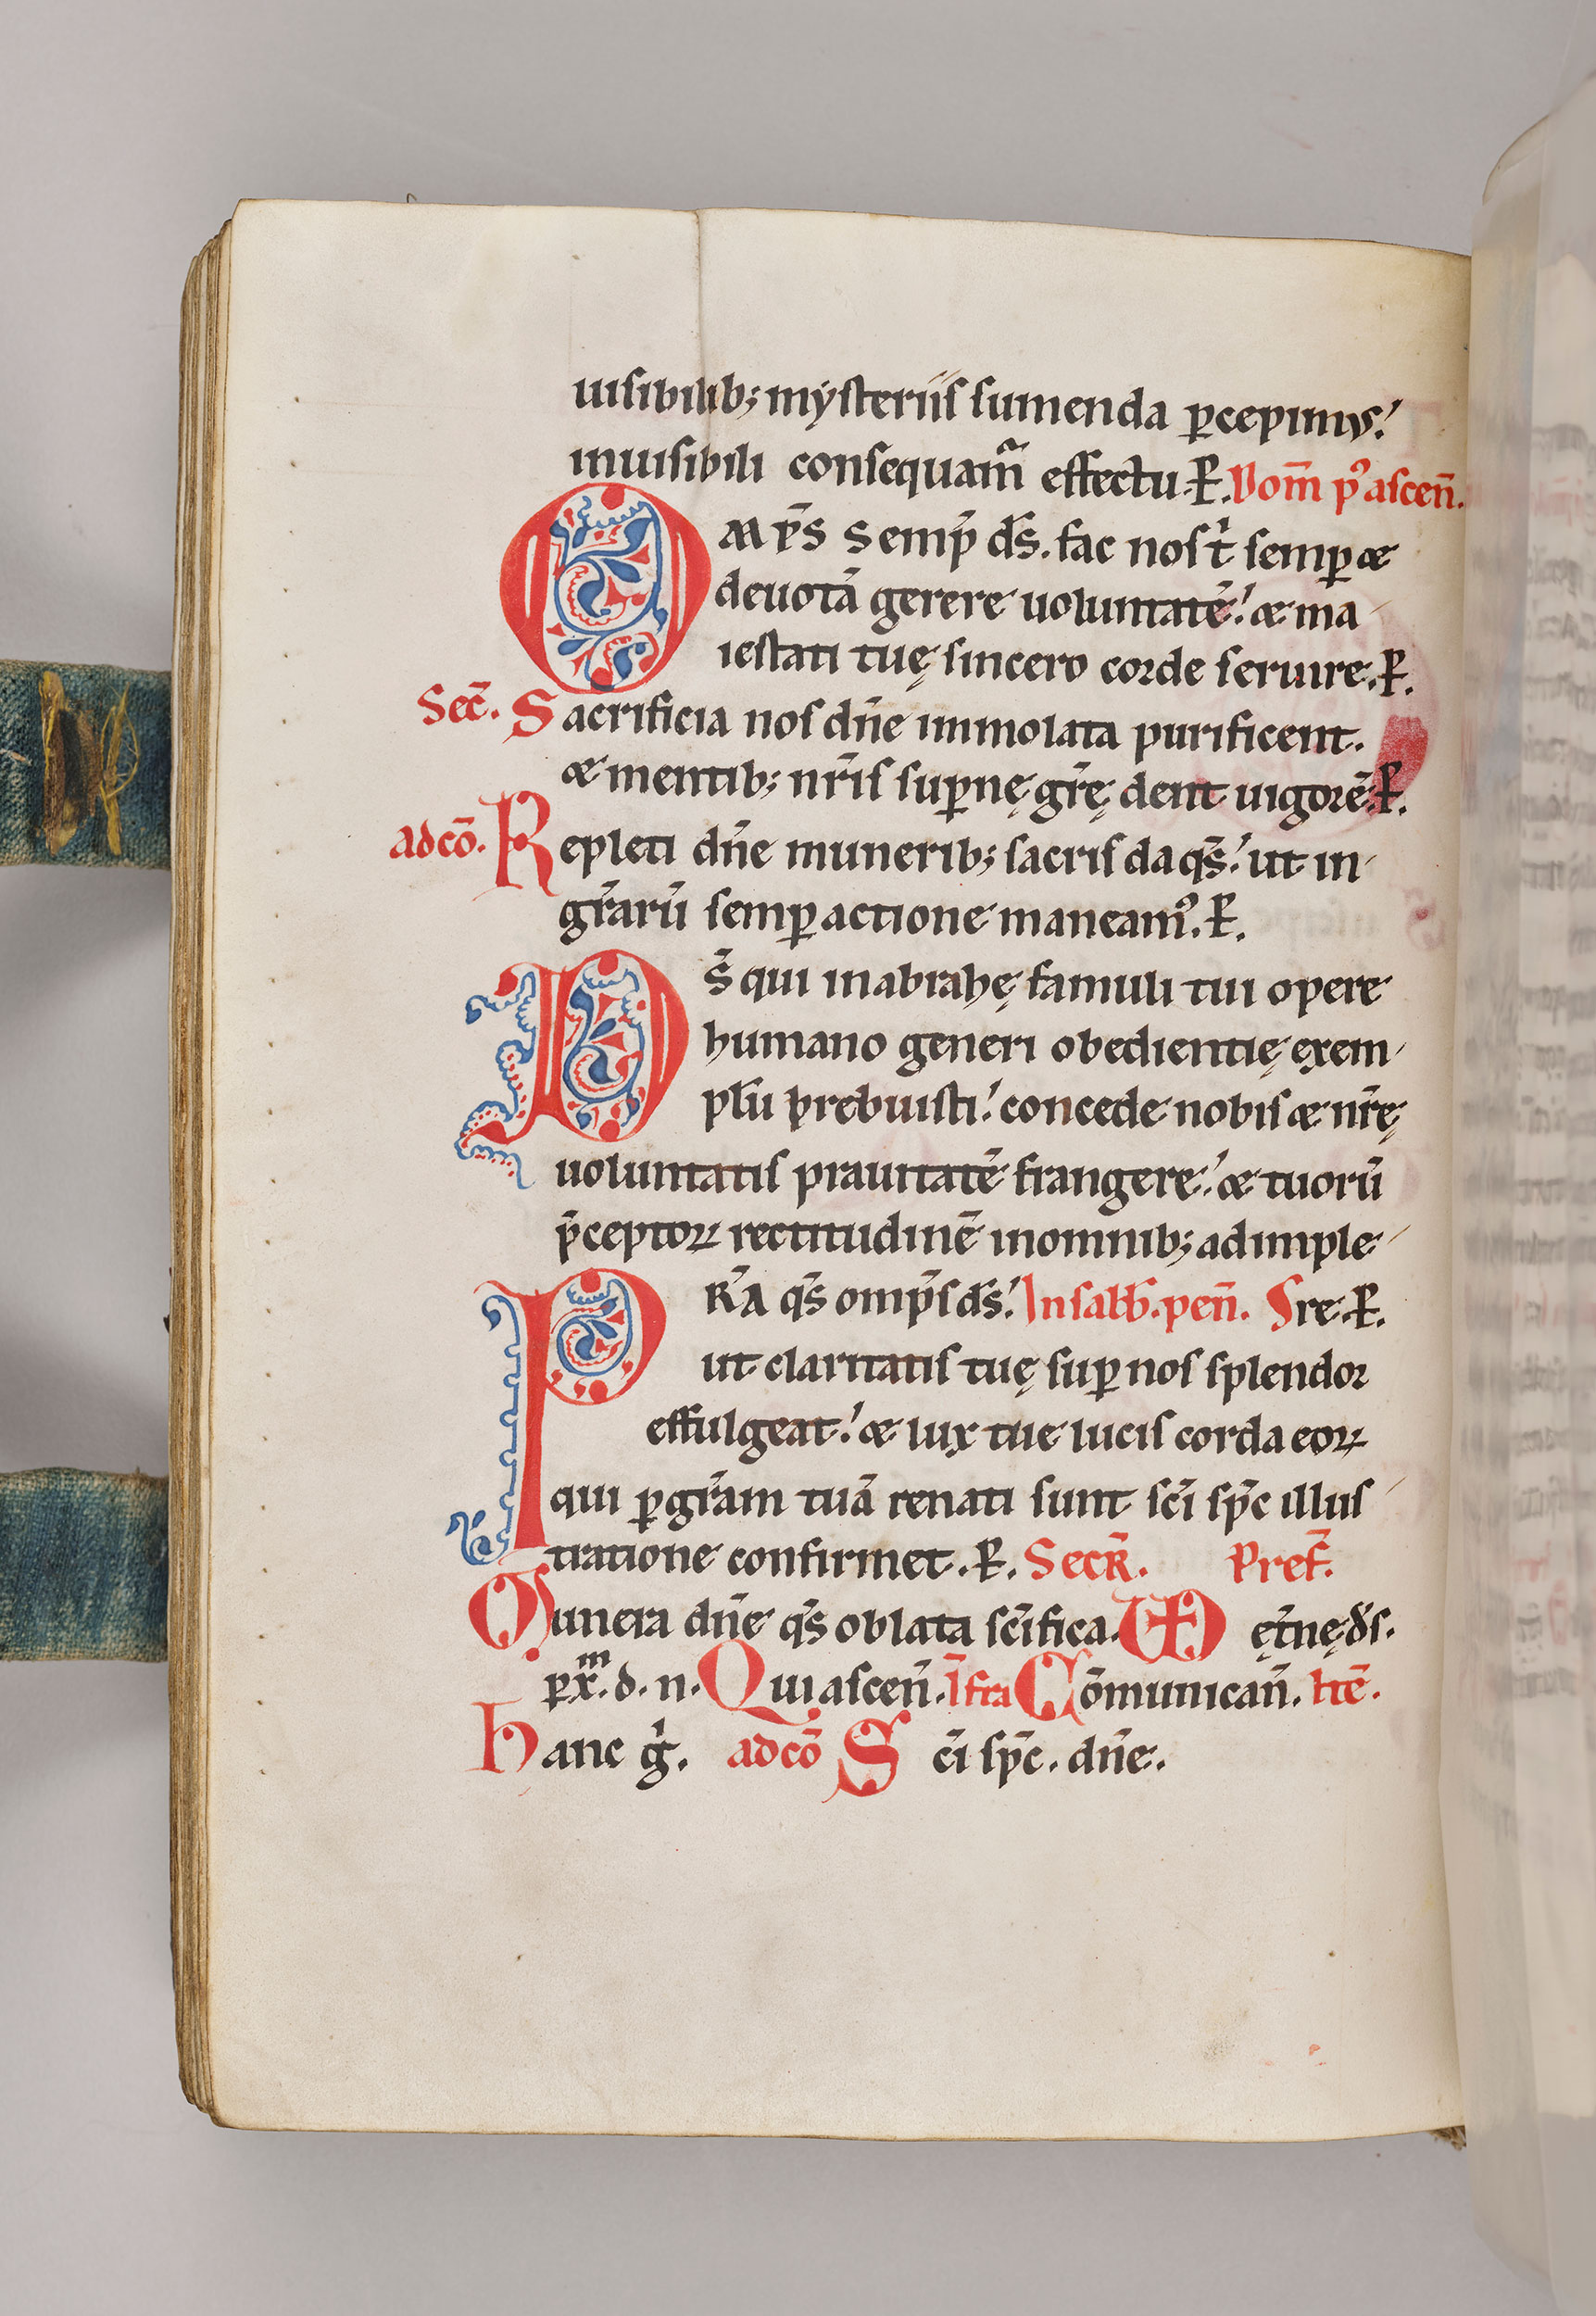 uisibilib; mẏsteriis sumenda ꝑcepimus!
inuisibili consequam̃ effectu. P̄. Dom̄ pꝰ ascen̄.
OMP̄S Semꝑ ds̄. fac nos t̄ semꝑ &
deuotā gerere uoluntatē! & ma
iestati tuę sincero corde seruire. P̄.
Sec̄. Sacrificia nos dn̄e immolata purificent.
& mentib; nr̄is suꝑnę gr̄ę dent uigorē. P̄.
ad cō. Repleti dn̄e munerib; sacris da qs̄! ut in
gr̄arū semꝑ actione maneamꝰ. P̄.
DS̄ qui in abrahę famuli tui opere
humano generi obedientię exem
plū prebuisti! concede nobis & nr̄ę
uoluntatis prauitatē frangere! & tuorū
p̄ceptoꝝ rectitudinē in omnib; adimple
PR̄A qs̄ omp̄s ds̄! In sabb̄. pen̄. Sre. P̄.
ut claritatis tuę suꝑ nos splendor
effulgeat! & lux tue lucis corda eoꝝ
qui ꝑ gr̄am tuā renati sunt sc̄i sp̄c illus
tratione confirmet. P̄. Secr̄. Pref̄.
Munera dn̄e qs̄ oblata sc̄ifica. VD ęt̄nę ds̄.
ꝑ xm̄. d. n. Qui ascen̄. Īfra Cōmunican̄. Itē.
Hanc g̍. ad cō Sc̄i sp̄c. dn̄e.